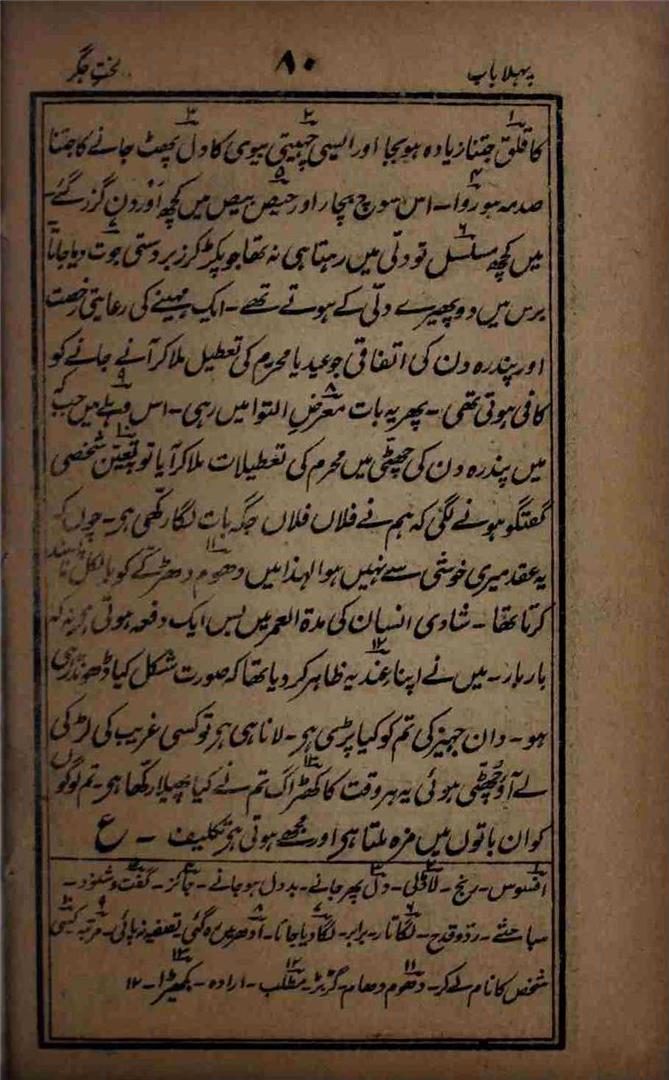 پہلا باب
۸۰
لختِ جگر
کا قلق جتنا زیادہ ہو بجا اور ایسی چہیتی بیوی کا دل پھٹ جانے کا جتنا
صدمہ ہو روا۔ اس سوچ بچار اور حیص بیص میں کچھ اَوْر دن گزر گئے۔
میں کچھ مسلسل تو دلّی میں رہتا ہی نہ تھا جو پکڑ کر زبردستی جوت دیا جاتا
برس میں دو پھیرے دلّی کے ہوتے تھے۔ ایک مہینے کی رعایتی رخصت
اور پندرہ دن کی اتفاقی جو عید یا محرم کی تعطیل ملا کر آنے جانے کو
کافی ہوتی تھی۔ پھر یہ بات معرضِ التوا میں رہی۔ اس وہلے میں جب کہ
میں پندرہ دن کی چھٹی میں محرم کی تعطیلات ملا کر آیا تو بتعین شخصی
گفتگو ہونے لگی کہ ہم نے فلاں فلاں جگہ بات لگا رکھی ہی۔ چوں کہ
یہ عقد میری خوشی سے نہیں ہوا لہذا میں دھوم دھڑکے کو بالکل ناپسند
کرتا تھا۔ شادی انسان کی مدۃ العمر میں بس ایک دفعہ ہوتی ہی نہ کہ
بار بار۔ میں نے اپنا عندیہ ظاہر کر دیا تھا کہ صورت شکل کیا ڈھونڈ رہی
ہو۔ دان جہیز کی تم کو کیا پڑی ہی۔ لانا ہی ہی تو کسی غریب کی لڑکی
لے آؤ چھٹی ہوئی یہ ہر وقت کا کھڑاگ تم نے کیا پھیلا رکھا ہی۔ تم لوگوں
کو ان باتوں میں مزہ ملتا ہی اور مجھے ہوتی ہی تکلیف ۔ ع
۱ افسوس۔ رنج۔ ۲ لاڈلی۔ ۳ دل پھر جانے۔ بددل ہو جانے۔ ۴ جائز۔ ۵ گفت و شنود۔
مباحثے۔ ردّ و قدح۔ ۶ لگاتار۔ برابر۔ ۷ لگا دیا جاتا۔ ۸ ادھر میں رہ گئی۔ تصفیہ نہ پائی۔ ۹ مرتبہ ۱۰ کسی
شخص کا نام لے کر۔ ۱۱ دھوم دھام۔ گڑبڑ۔ ۱۲ مطلب۔ ارادہ۔ ۱۳ بکھیڑا۔ ۱۲